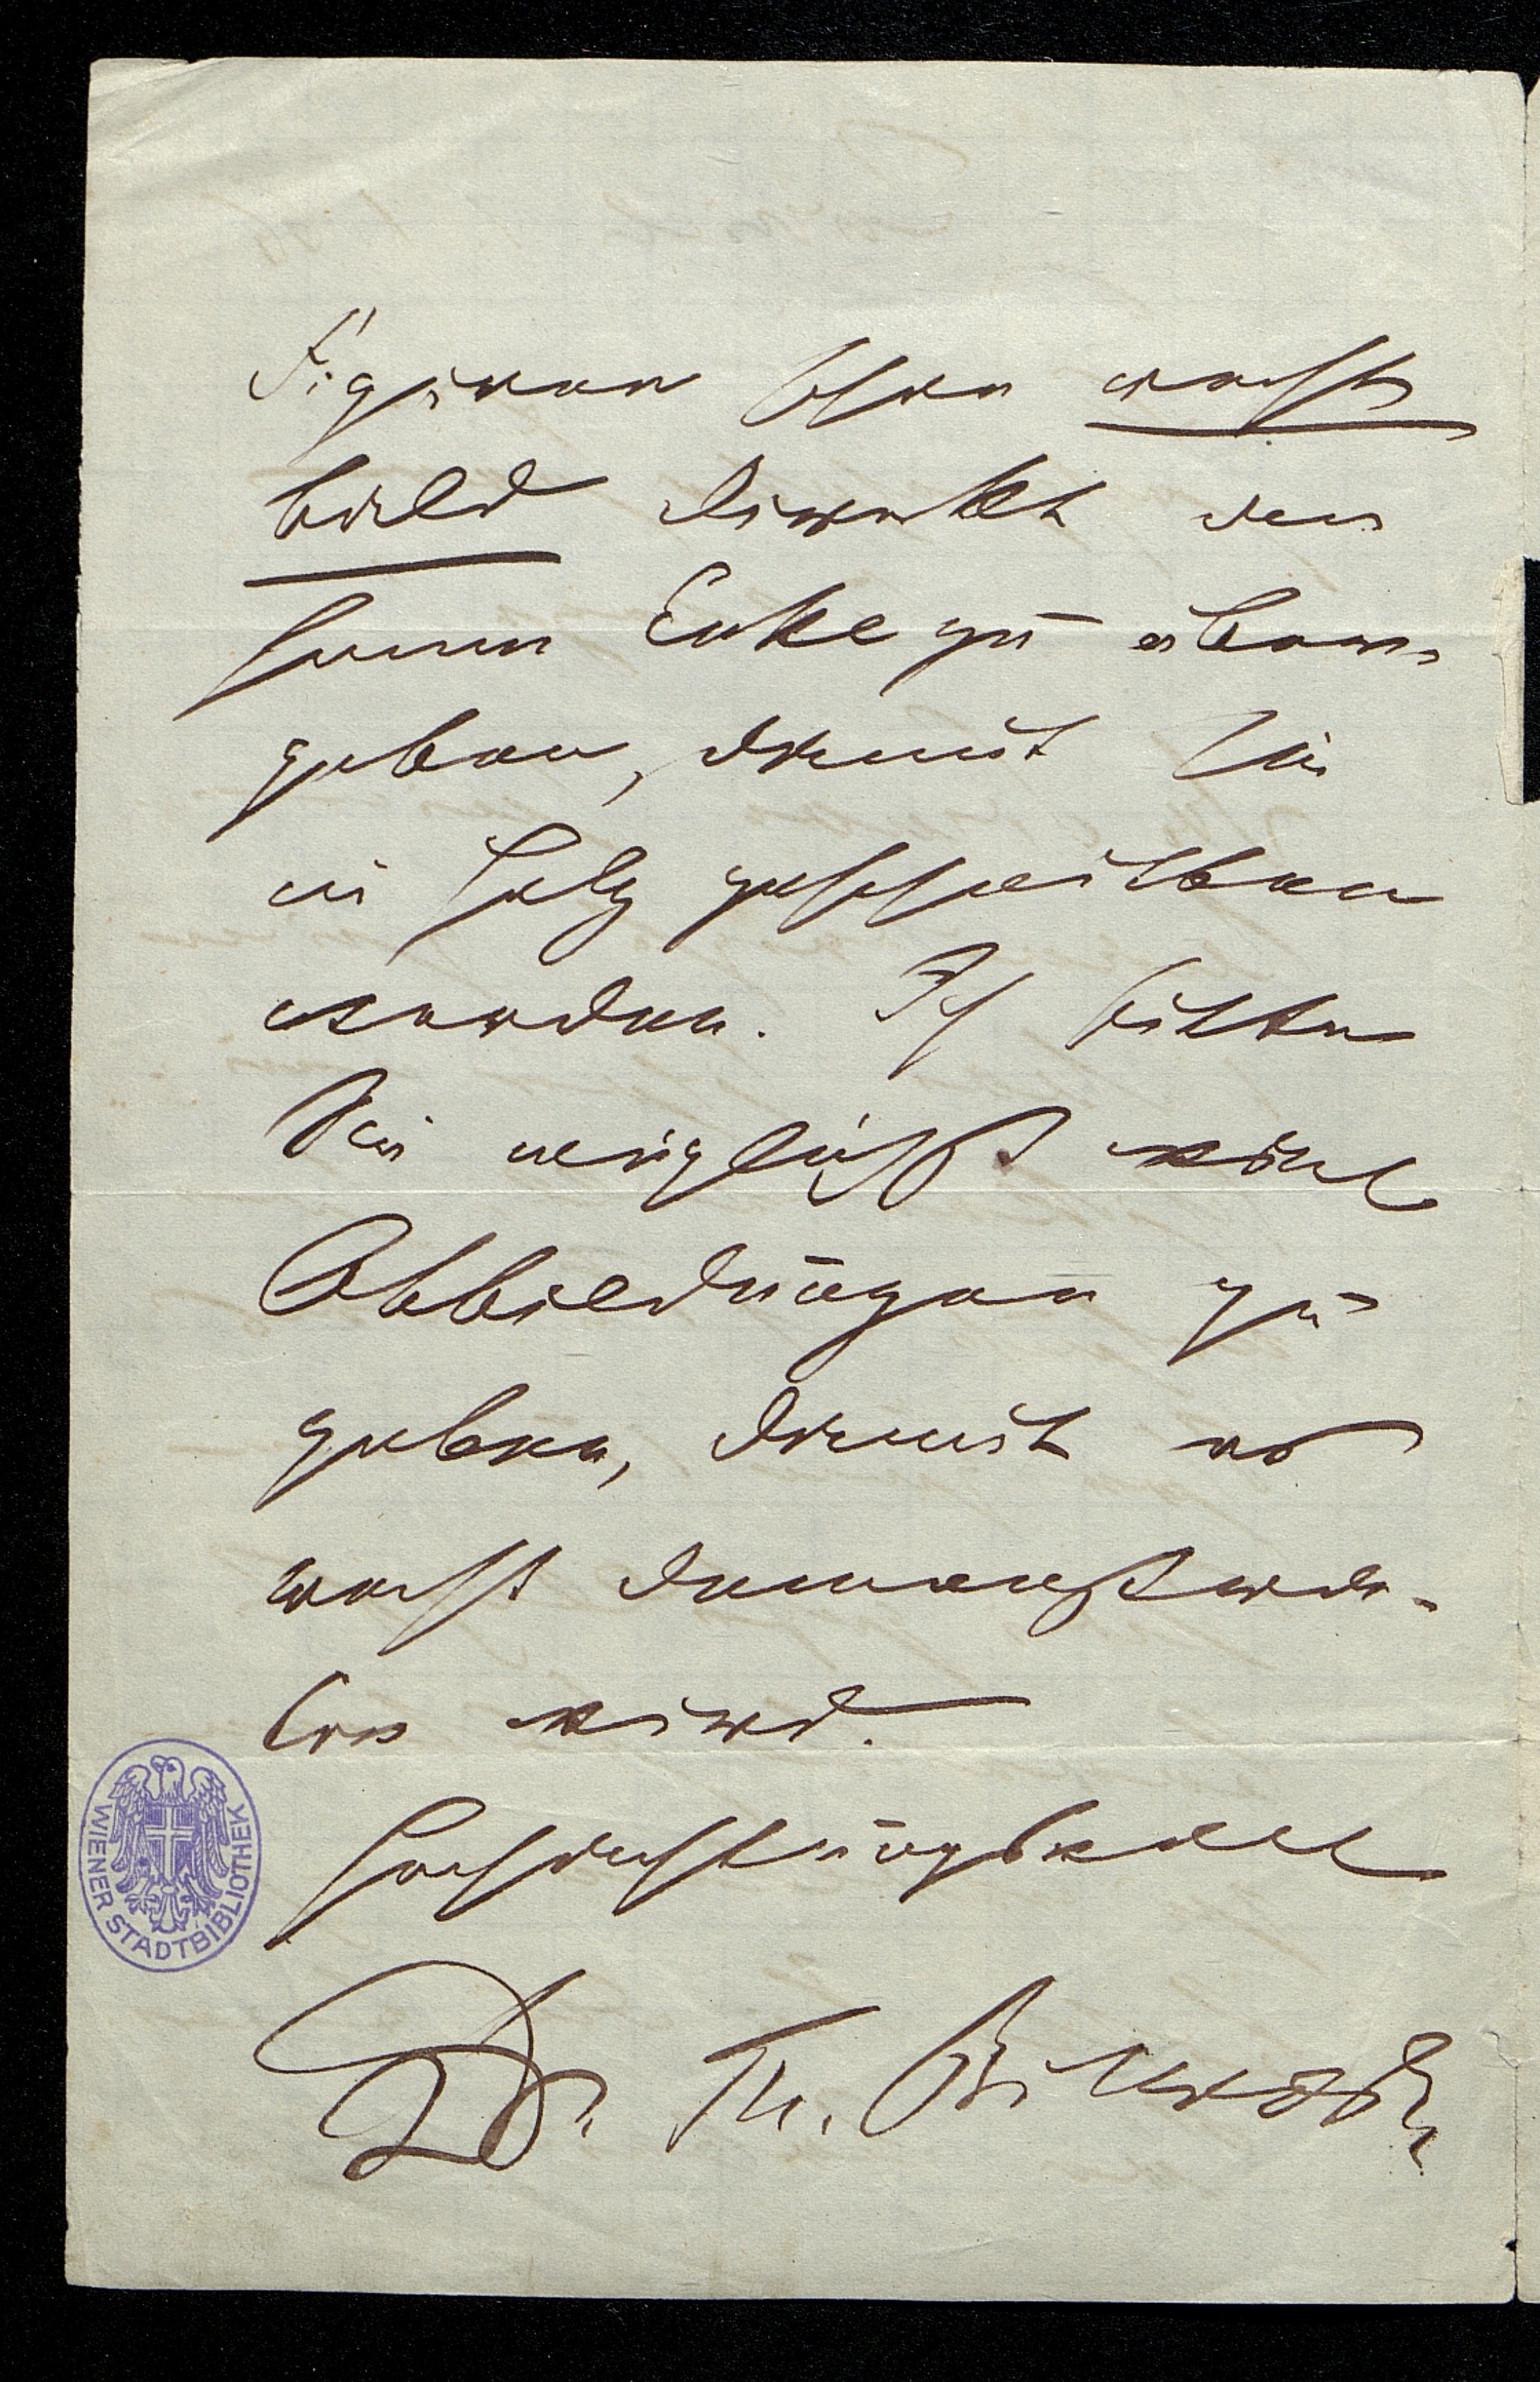 Figuren schon recht
bald direkt an
Herrn Enke zu über-
geben, damit sie
in Holz geschnitten
werden. Ich bitte
Sie möglichst viele
Abbildungen zu
geben, damit es
recht demonstra-
tiv wird.
Hochachtungsvoll
Dr. Th. Billroth
WIENER STADTBIBLIOTHEK